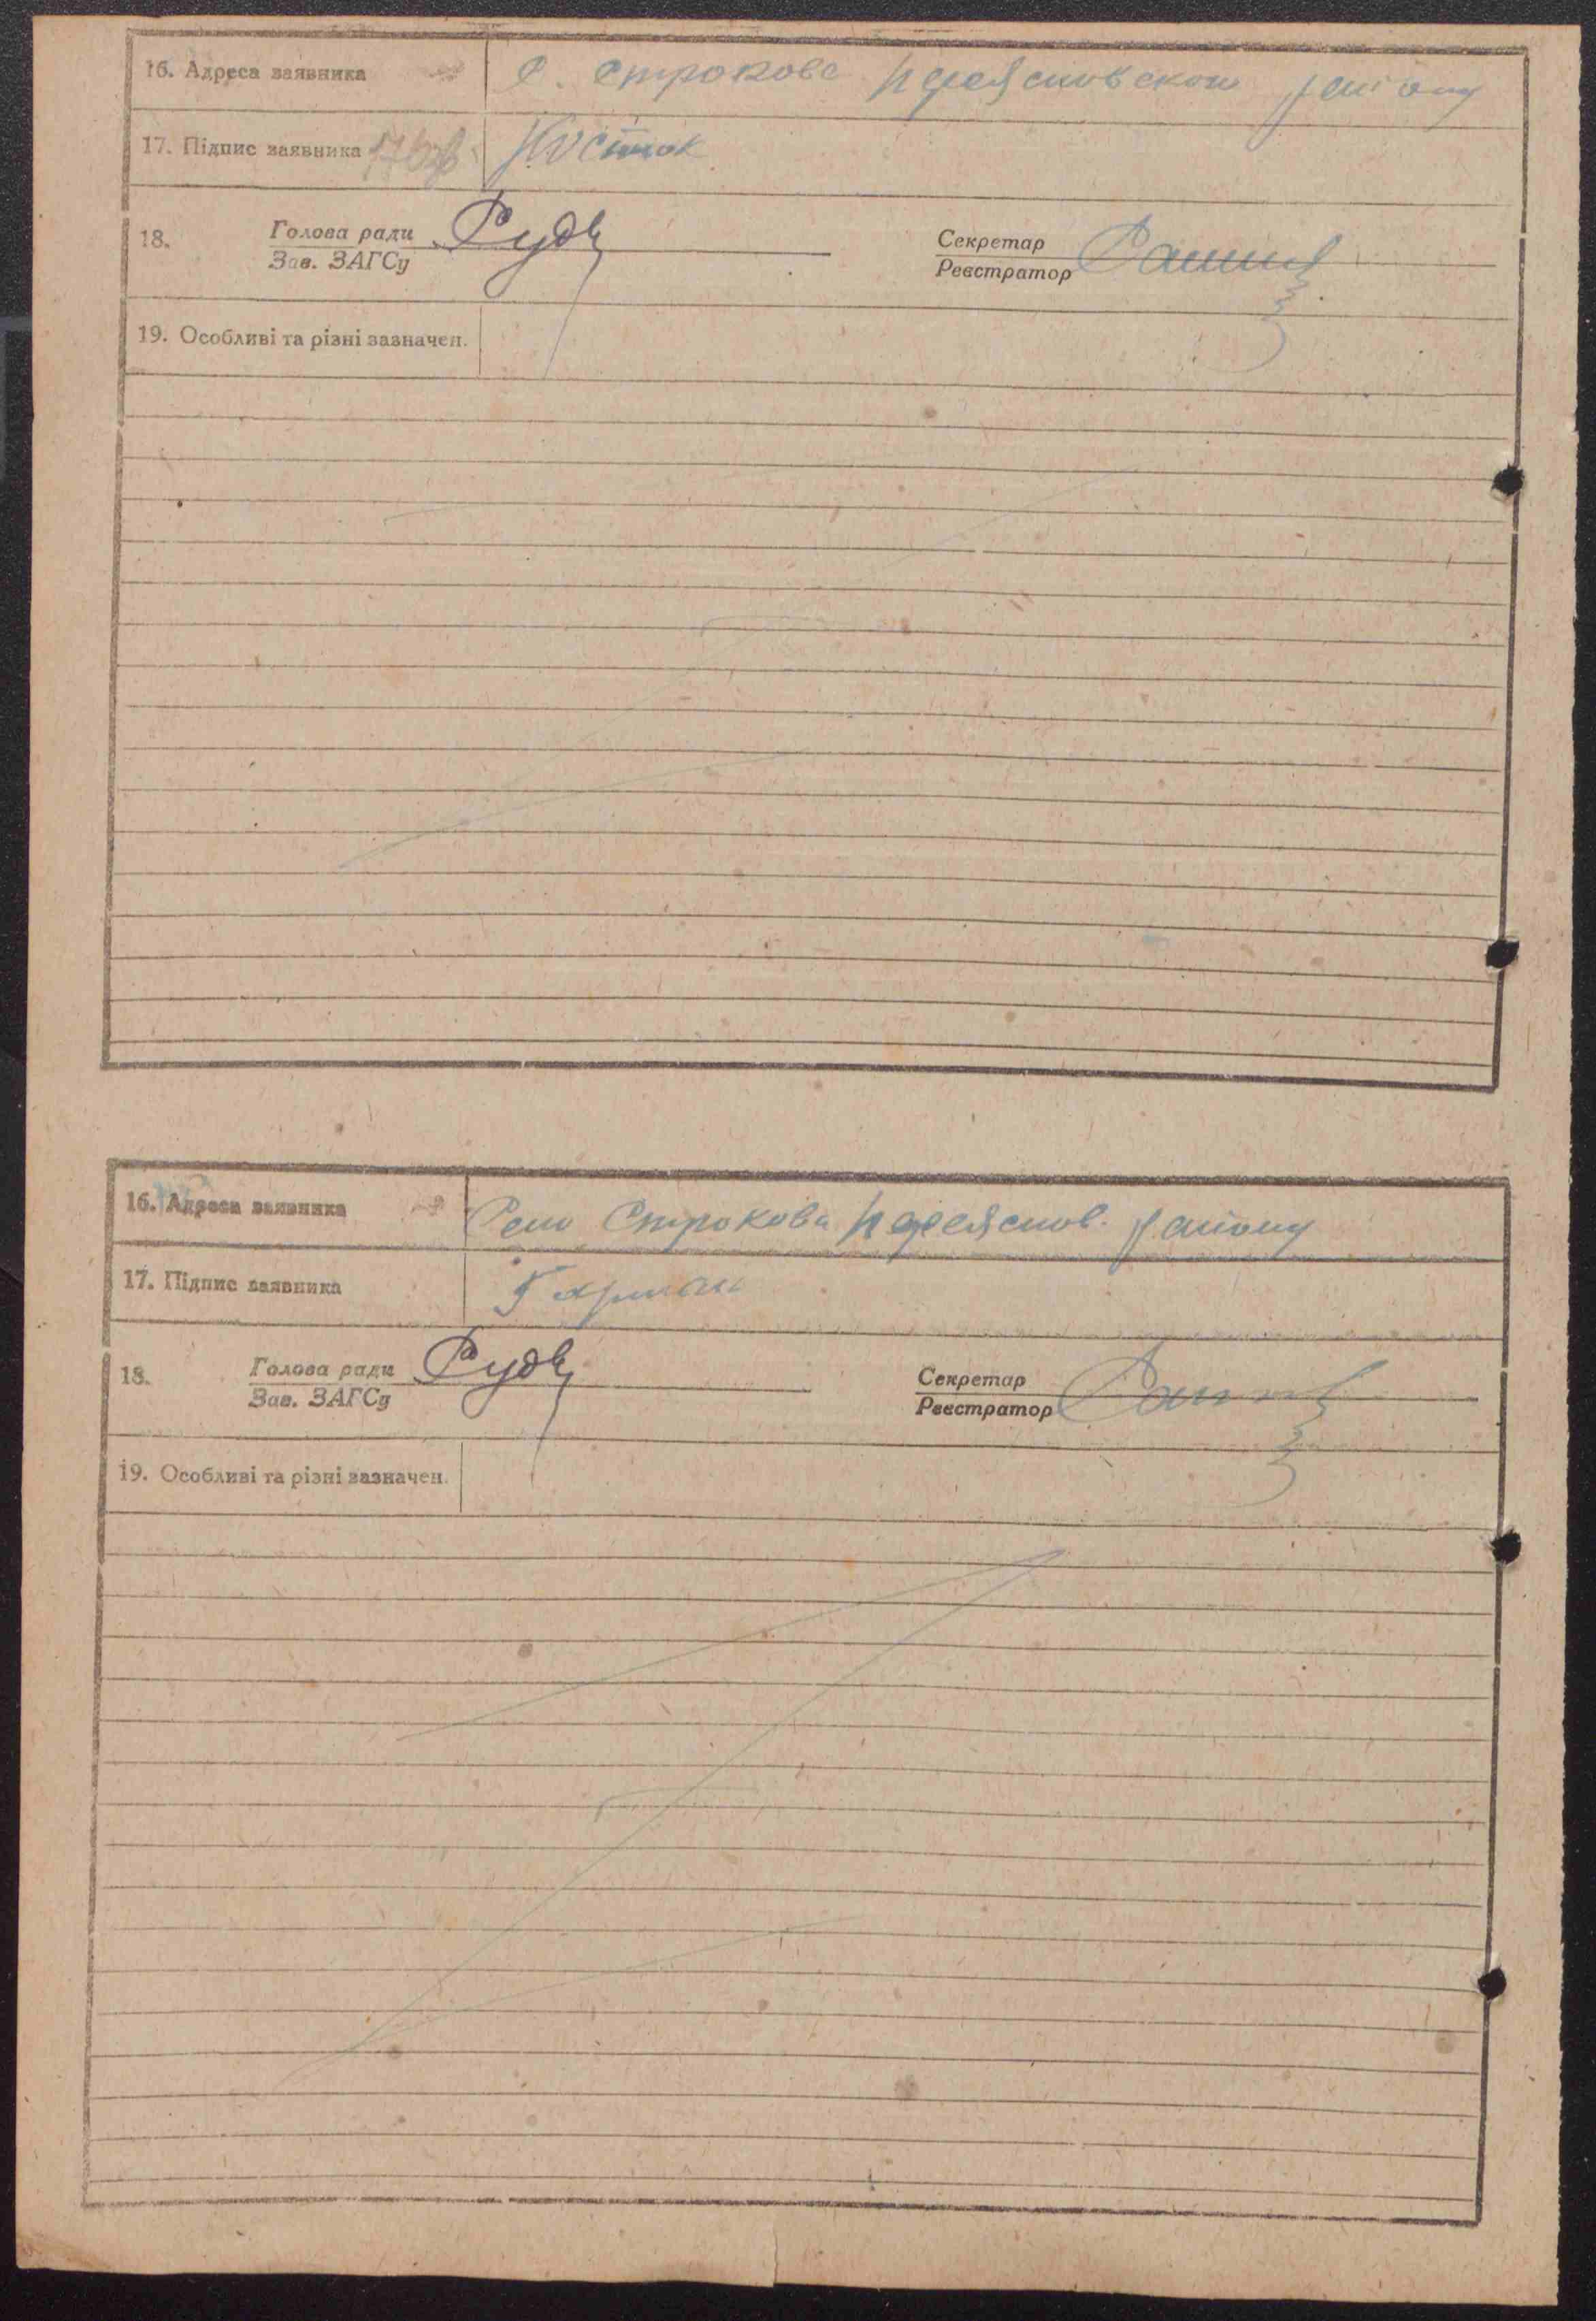 16. Адреса заявника С. Строкова Переяславском району
17. Підпис заявника Костюк
18. Голова ради Рудь Секретар
Зав. ЗАГСу Реєстратор
19. Особливі та різні зазначен.
16. Адреса заявника Село Строкова Переяслов. району
17. Підпис заявника Гармаш
18. Голова ради Рудь Секретар
Зав. ЗАГСу Реєстратор
19. Особливі та різні зазначен.